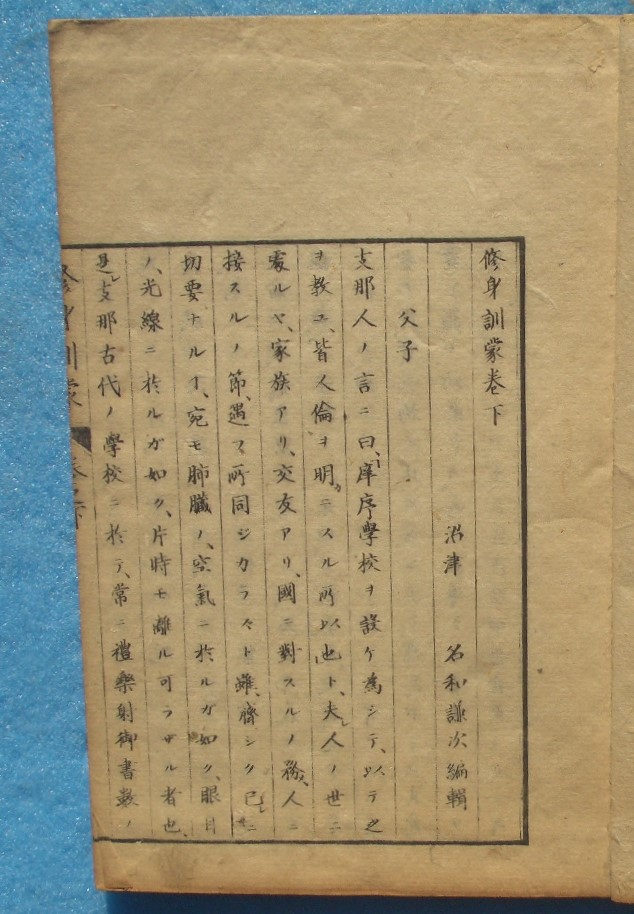 修身訓蒙卷下
沼津 名和謙次編輯
父子
支那人ノ言ニ曰、庠序學校ヲ設ケ為シテ、以テ之
ヲ教ユ、皆人倫ヲ明ニスル所以也ト、夫人ノ世ニ
處ルヤ、家族アリ、交友アリ、國ニ對スルノ務、人ニ
接スルノ節、遇フ所同ジカラズト雖、齊シク己ニ
切要ナルヿ、宛モ肺臟ノ、空氣ニ於ルガ如ク、眼目
ノ、光線ニ於ルガ如ク、片時モ離ル可ラザル者也、
是支那古代ノ學校ニ於テ、常ニ禮樂射御書數ノ
修身訓蒙 卷之下